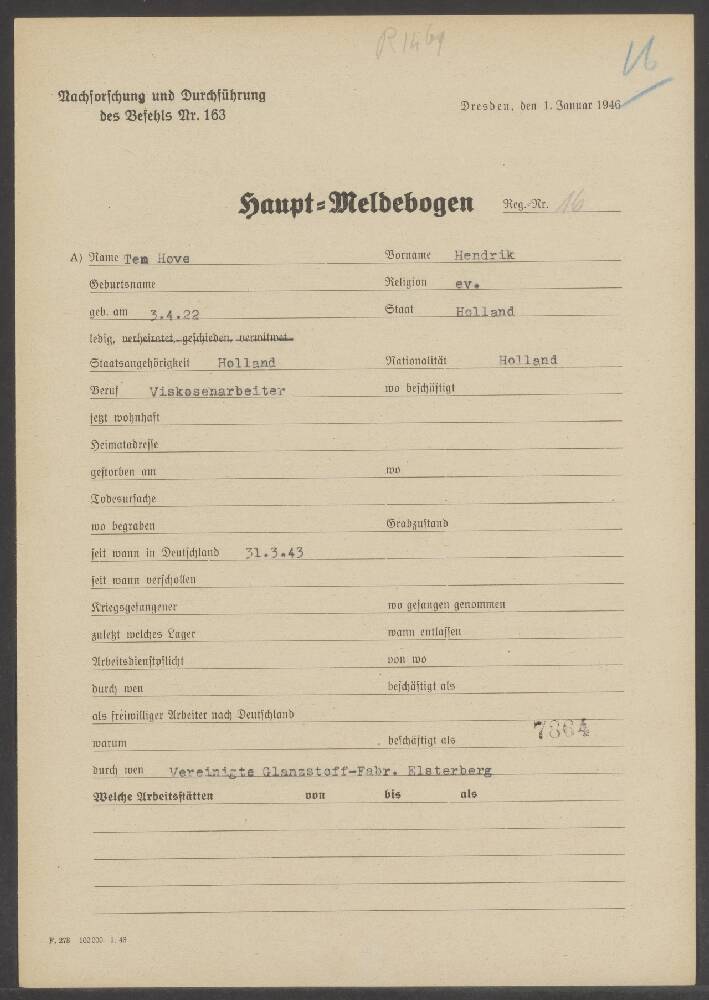 R 1469
16
Nachforschung und Durchführung
des Befehls Nr. 163
Dresden, den 1. Januar 1946
Haupt-Meldebogen Reg.-Nr. 16
A) Name Ten Hove Vorname Hendrik
Geburtsname Religion ev.
geb. am 3.4.22 Staat Holland
ledig, verheiratet, geschieden, verwitwet
Staatsangehörigkeit Holland Nationalität Holland
Beruf Viskosenarbeiter wo beschäftigt
jetzt wohnhaft
Heimatadresse
gestorben am wo
Todesursache
wo begraben Grabzustand
seit wann in Deutschland 31.3.43
seit wann verschollen
Kriegsgefangener wo gefangen genommen
zuletzt welches Lager wann entlassen
Arbeitsdienstpflicht von wo
durch wen beschäftigt als
als freiwilliger Arbeiter nach Deutschland
7864
warum beschäftigt als
durch wen Vereinigte Glanzstoff-Fabr. Elsterberg
Welche Arbeitsstätten von bis als
F. 278 102000 1. 46